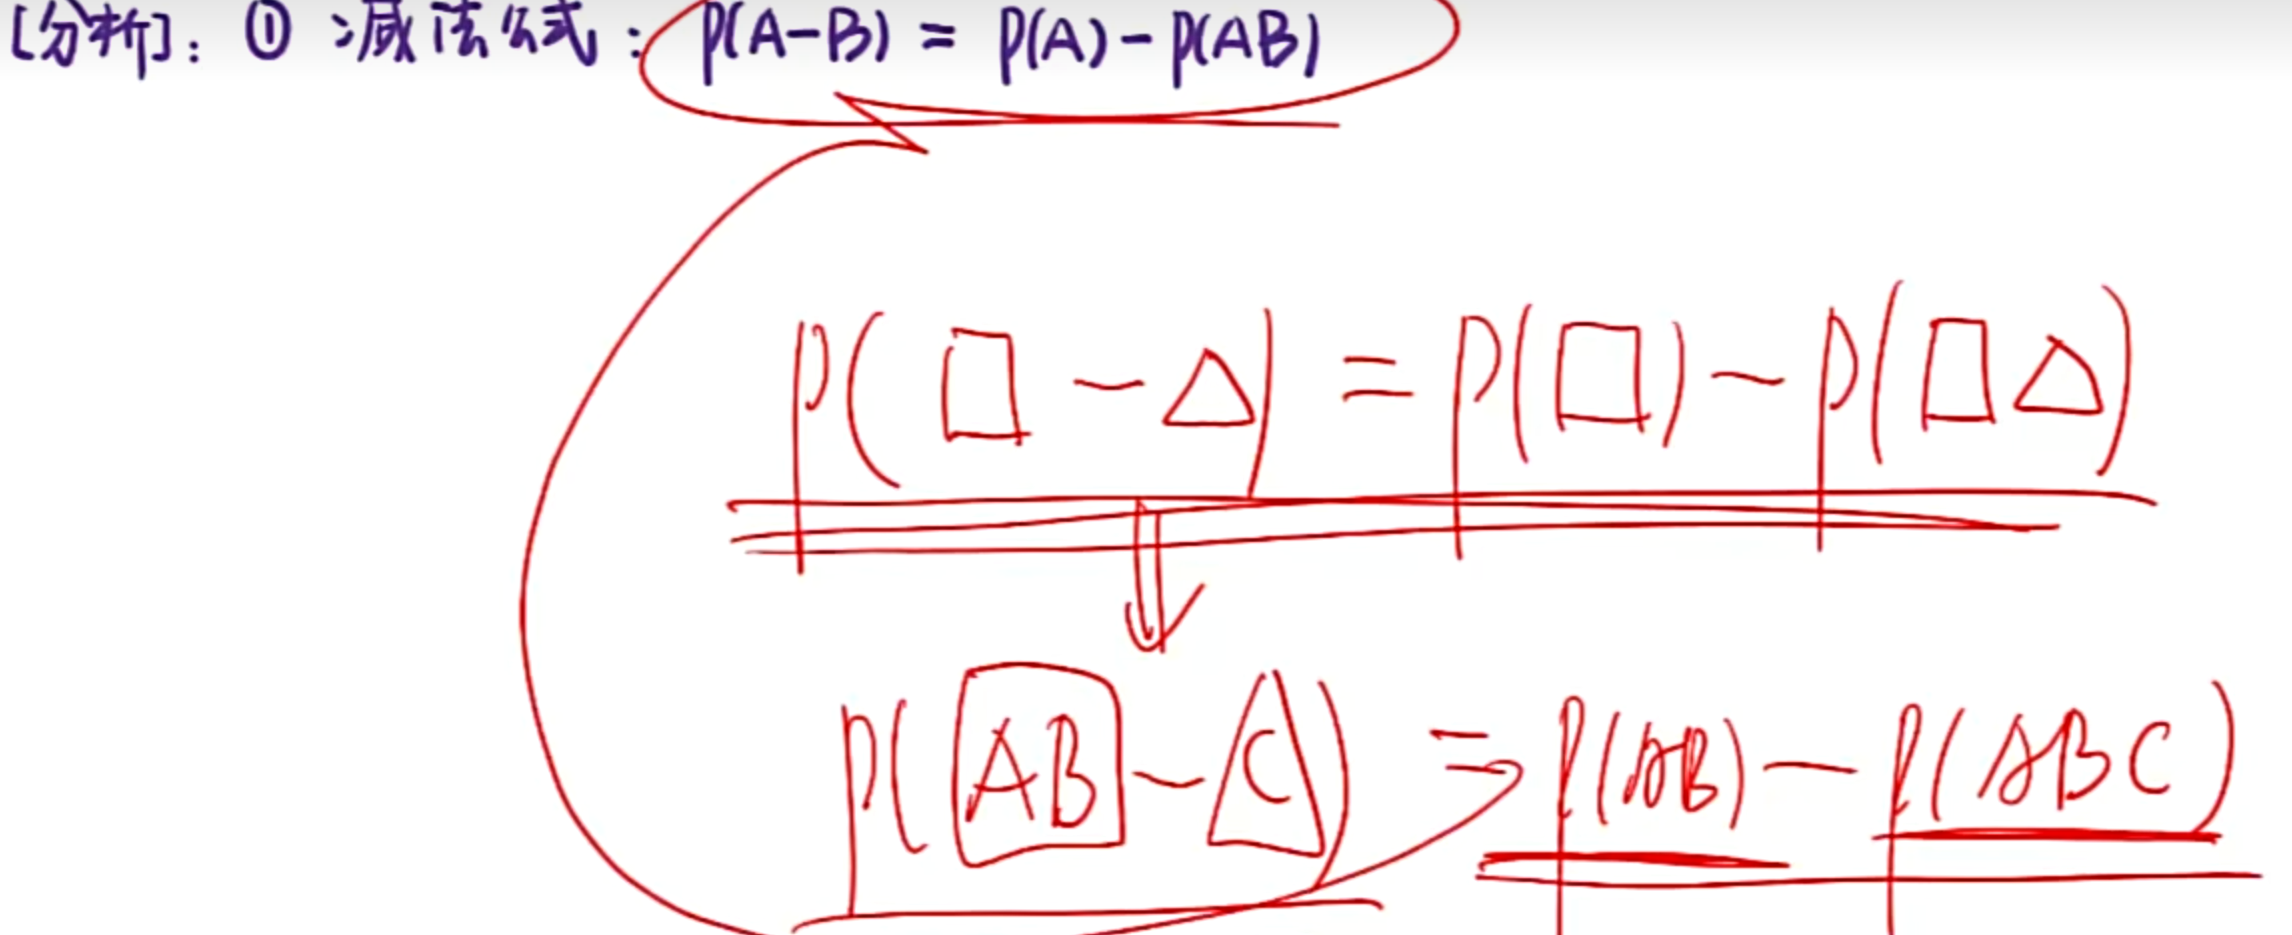 [分析]: ① 减法公式: P(A-B) = P(A) - P(AB)
P(□-△) = P(□) - P(□△)
P(AB-C) = P(AB) - P(ABC)